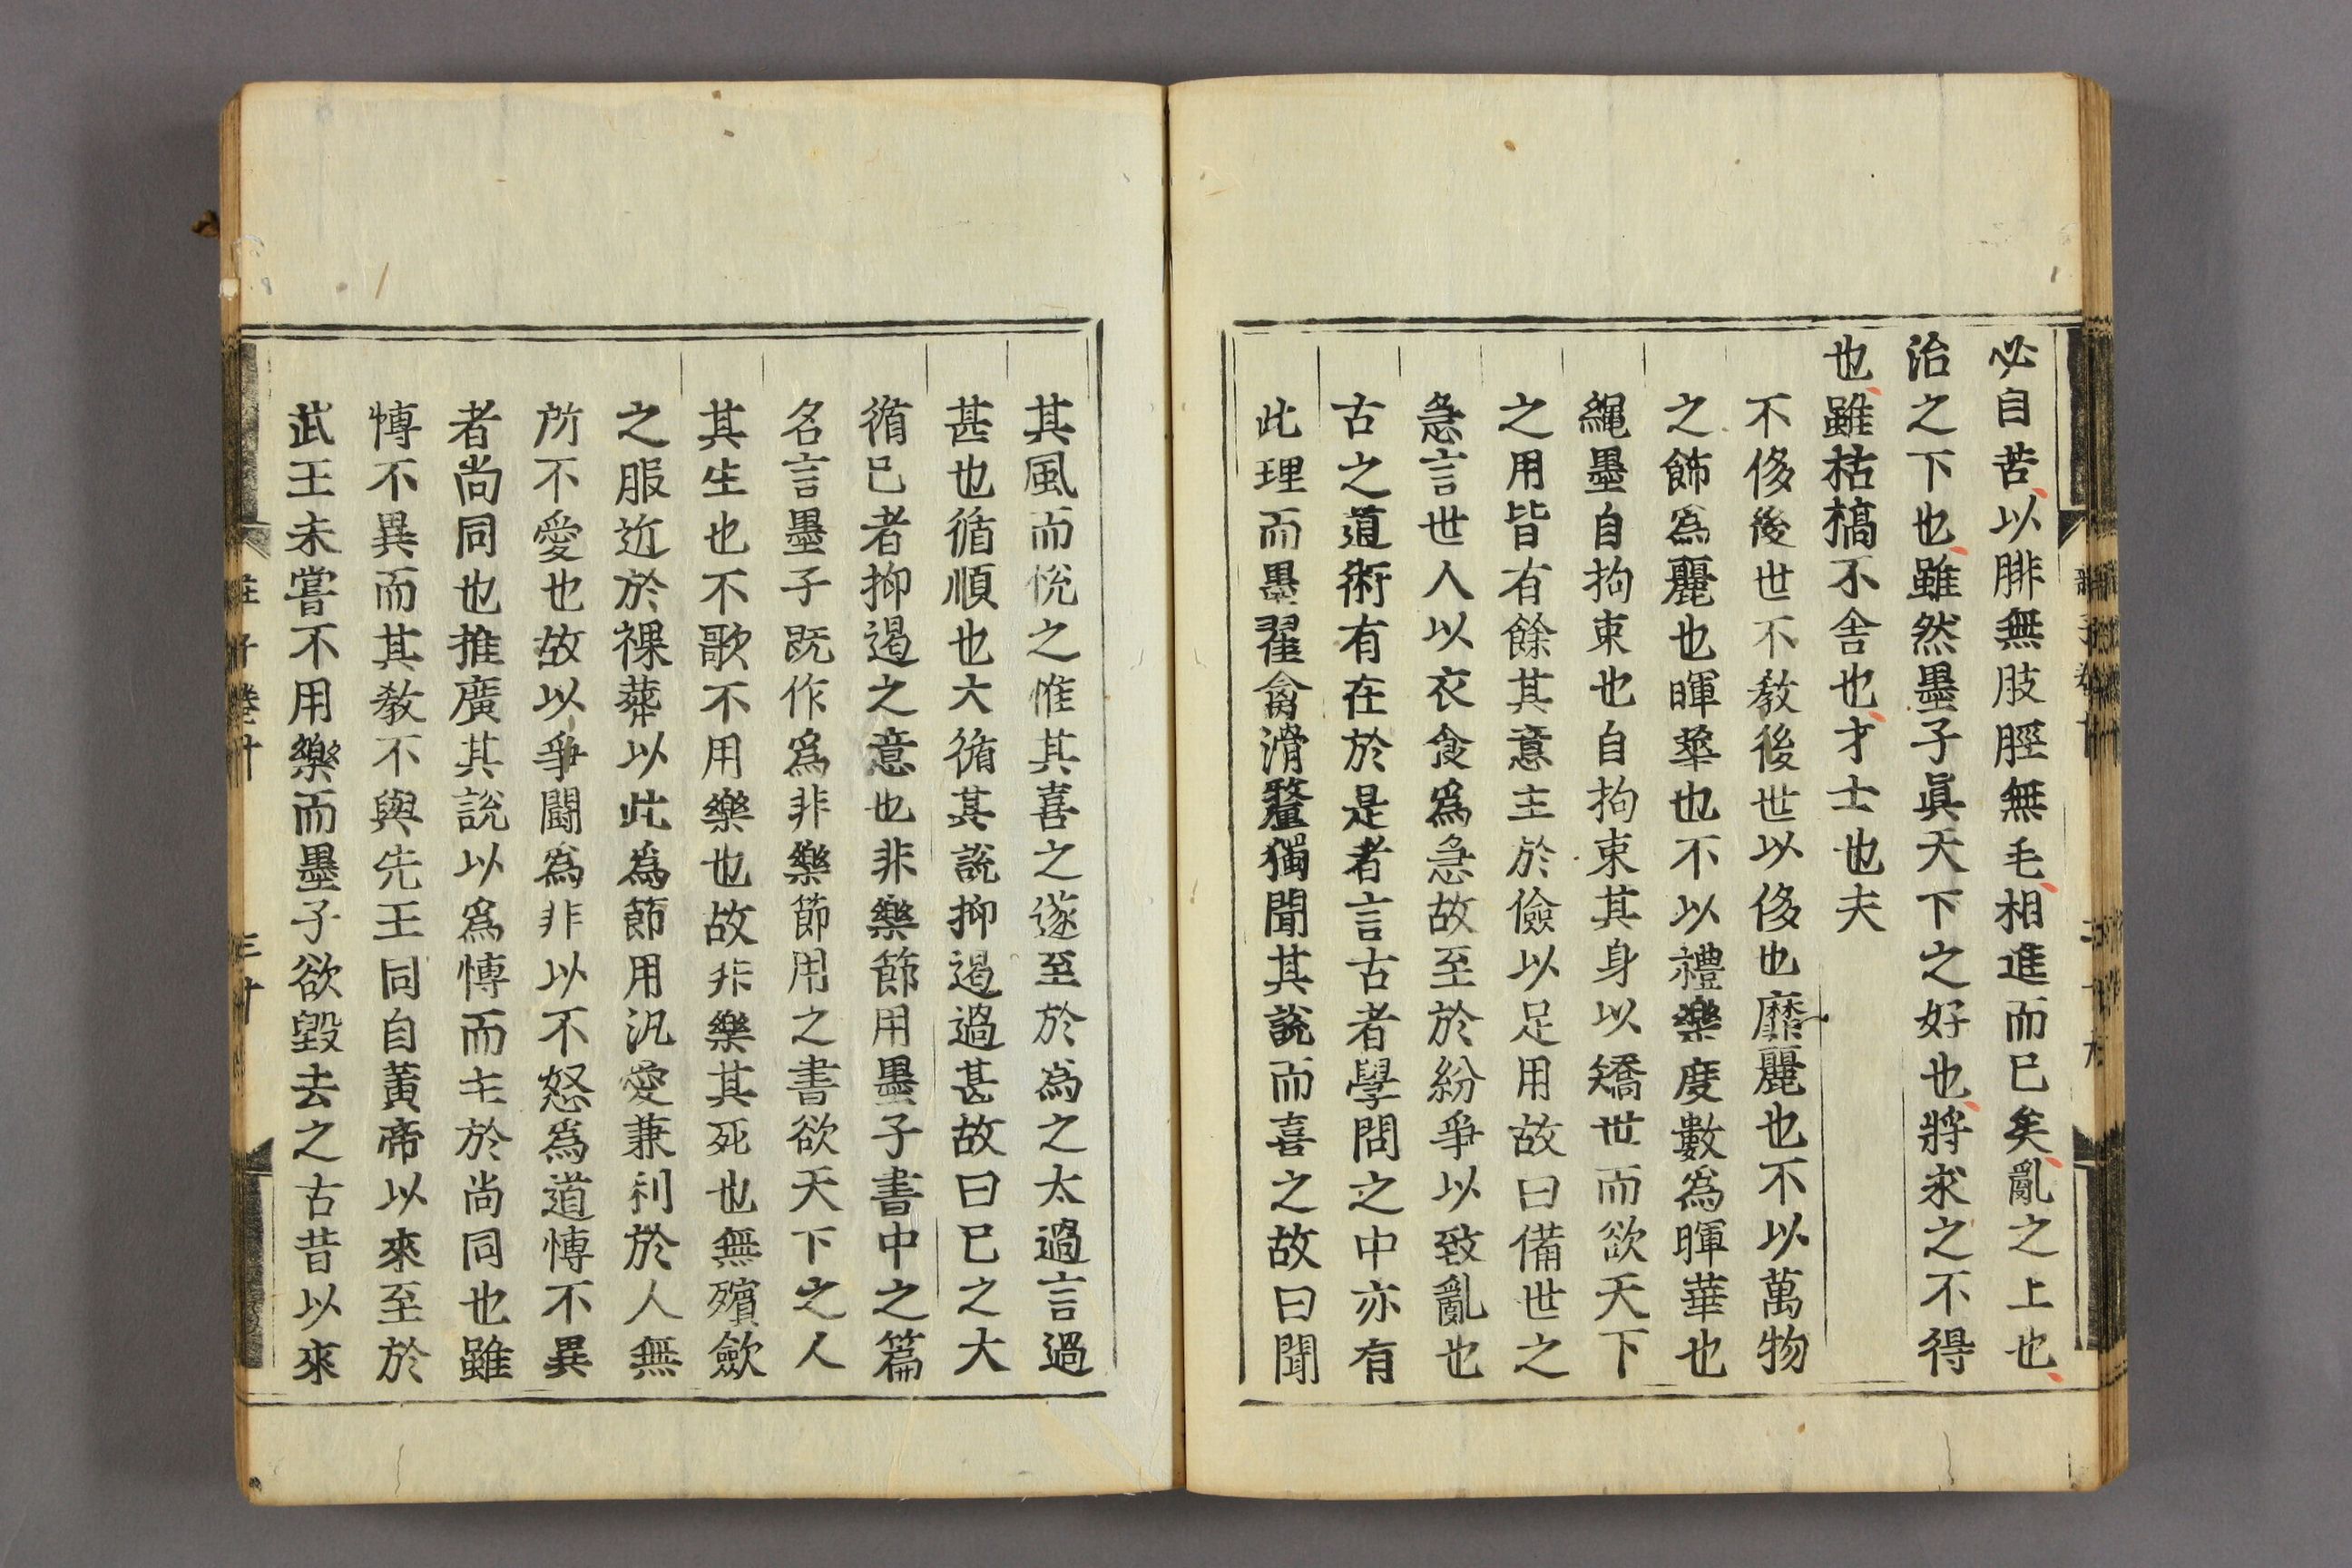 必自苦以腓無胈脛無毛相進而已矣亂之上也
治之下也雖然墨子眞天下之好也將求之不得
也雖枯槁不舍也才士也夫
不侈後世不教後世以侈也靡麗也不以萬物
之飾爲麗也暉華也不以禮樂度數爲暉華也
繩墨自拘束也自拘束其身以矯世而欲天下
之用皆有餘其意主於儉以足用故曰備世之
急言世人以衣食爲急故至於紛爭以致亂也
古之道術有在於是者言古者學問之中亦有
此理而墨翟禽滑釐獨聞其說而喜之故曰聞
其風而悅之惟其喜之遂至於爲之太過言過
甚也循順也大循其說抑遏過甚故曰已之大
循已者抑遏之意也非樂節用墨子書中之篇
名言墨子既作爲非樂節用之書欲天下之人
其生也不歌不用樂也故非樂其死也無殯歛
之服近於裸葬以此爲節用汎愛兼利於人無
所不愛也故以爭鬪爲非以不怒爲道愽不異
者尚同也推廣其說以爲愽而主於尚同也雖
愽不異而其教不與先王同自黃帝以來至於
武王未嘗不用樂而墨子欲毀去之古昔以來
莊子卷十 三十